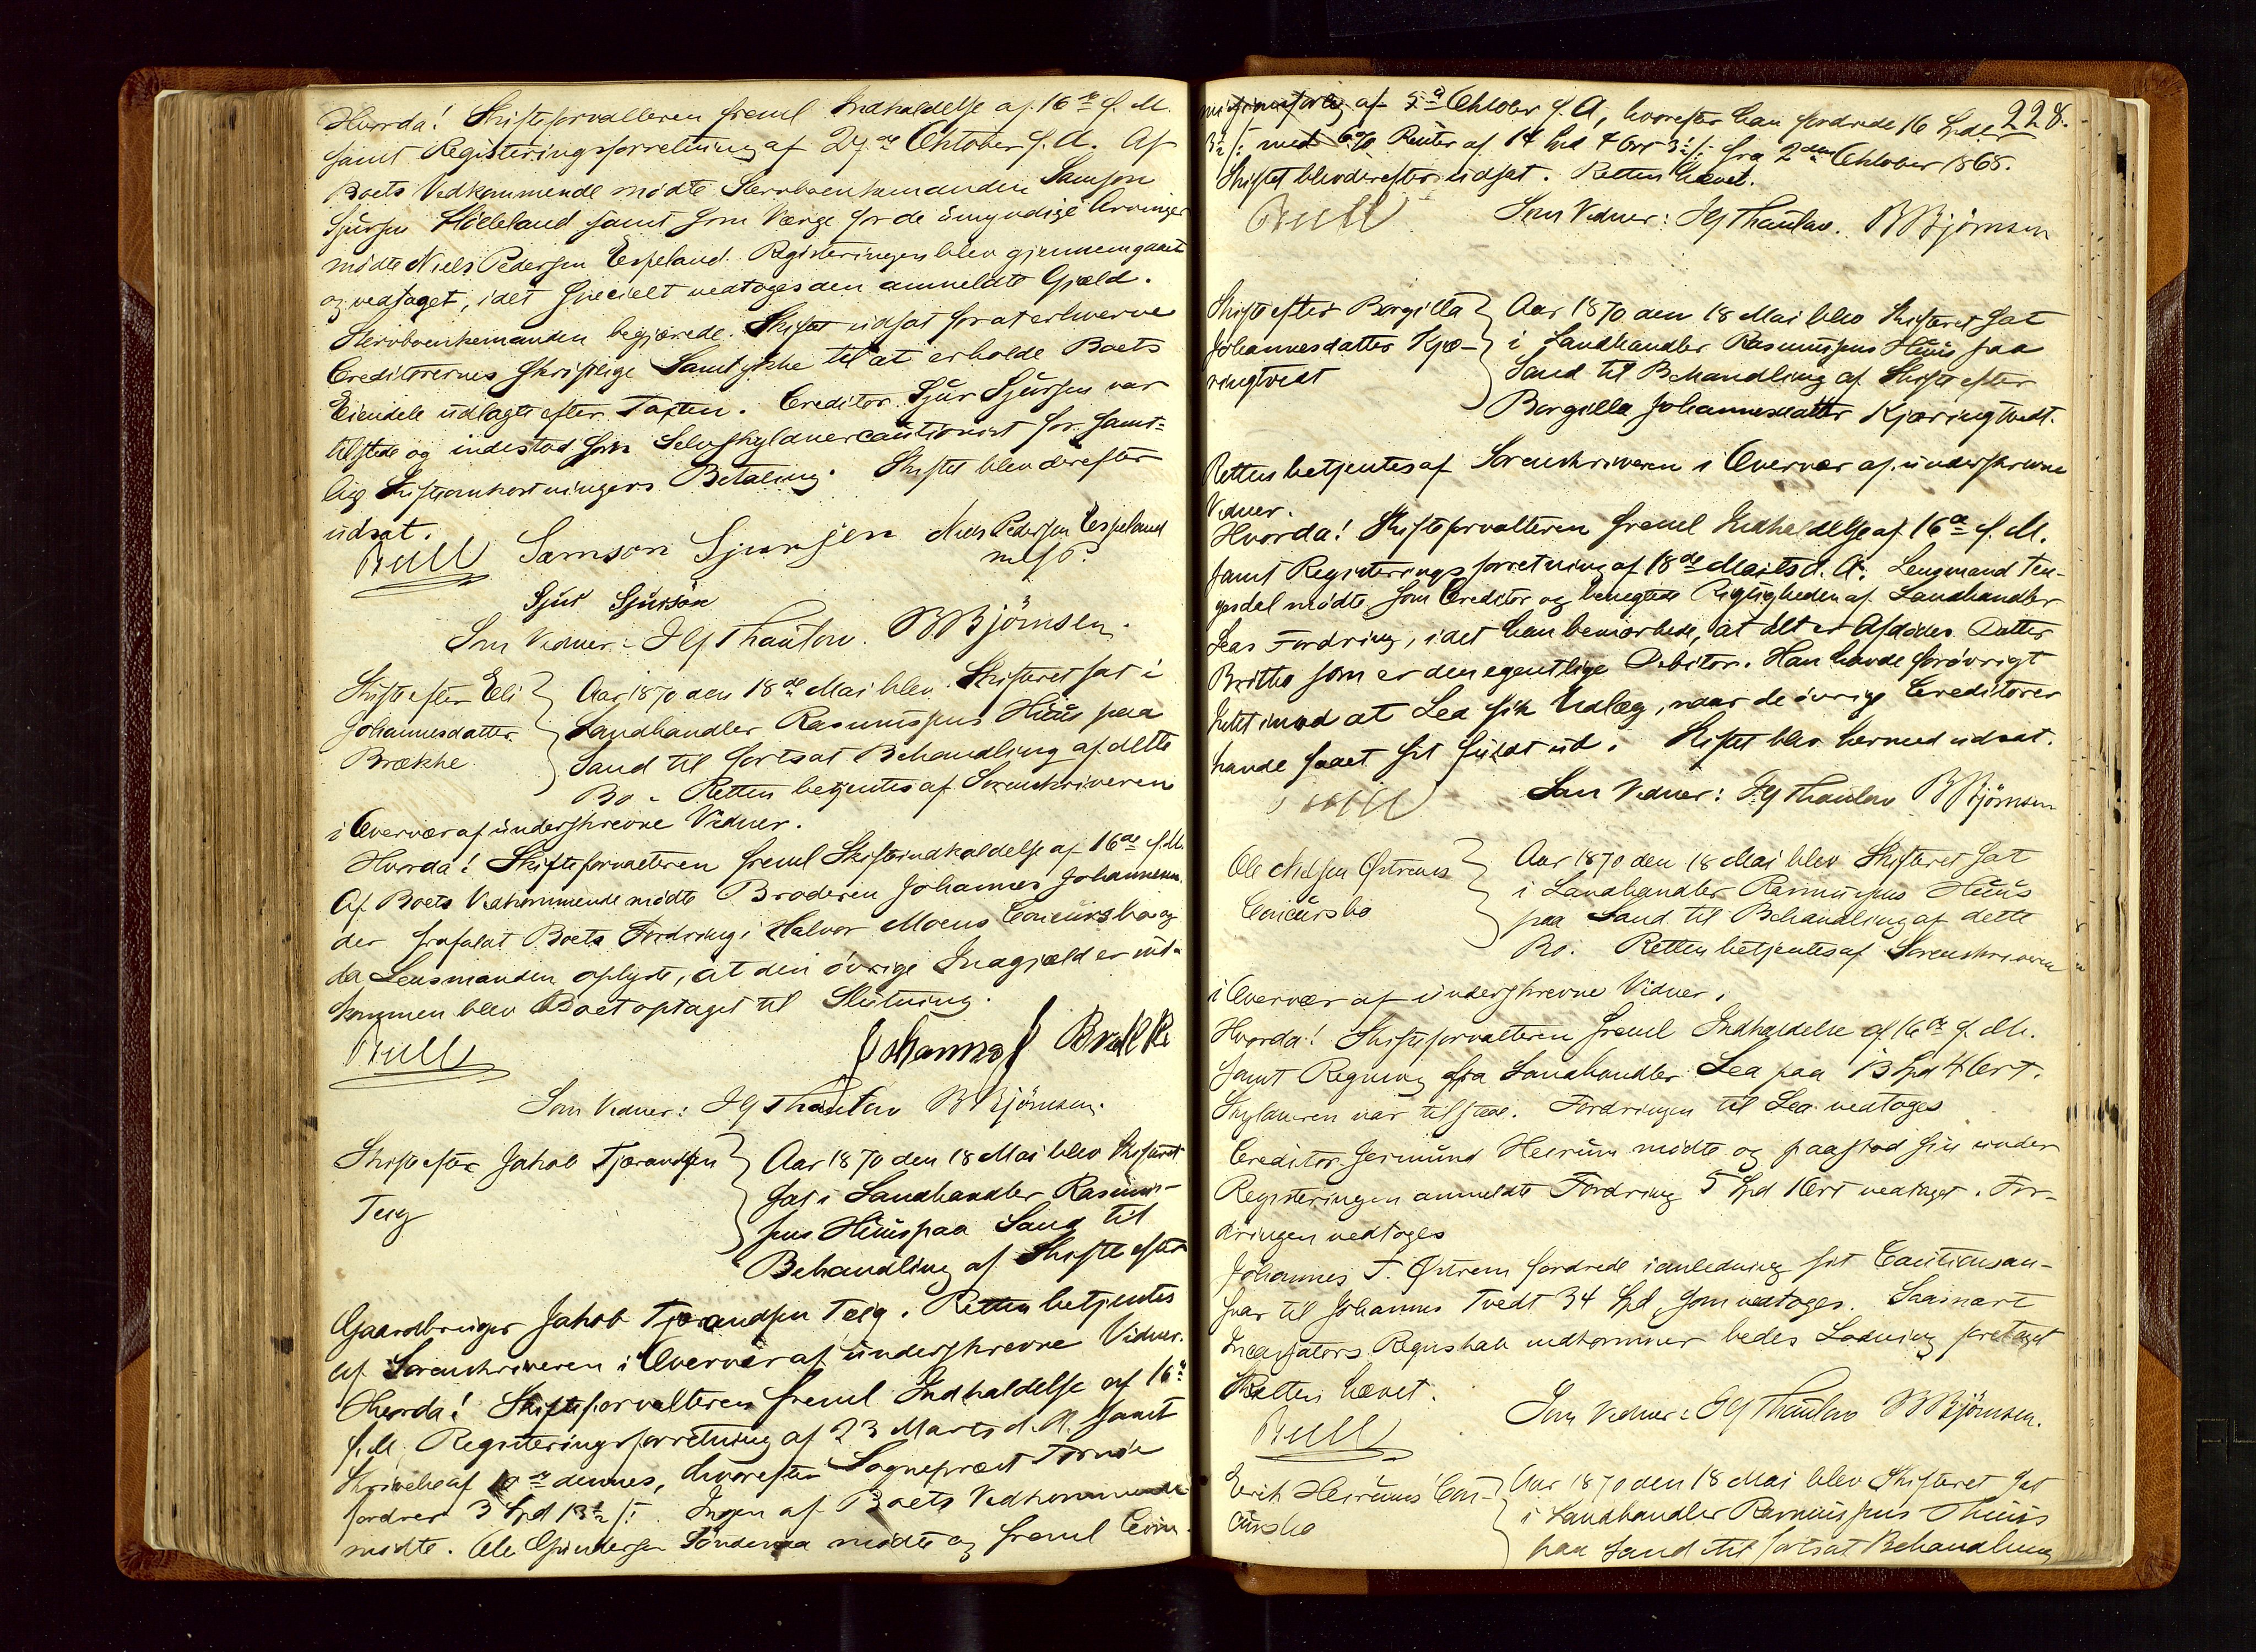 Hvorda! Skifteforvalteren freml Indkaldelse af 16de f. M.
samt Registeringsforretning af 27de Oktober f. A. Af
Boets Vedkommende mødte Stervboenkemanden Samson
Sjursen Hideland samt som Værge for de umyndige Arvinger
mødte Niels Pedersen Espeland. Registeringen blev gjennemgaaet
og vedtaget, idet specielt vedtoges den anmeldte Gjæld.
Stervboenkemanden begjærede Skiftet udsat for at erhverve
Creditorernes skriftlige Samtykke til at erholde Boets
Eiendele udlagte efter Taxten. Creditor Sjur Sjursen var
tilstede og indestod som Selvskyldnercautionist for samt-
lig Skifteomkostningers Betaling. Skiftet blev derefter
udsat.
Bull Samson Sjursen Niels Pedersen Espeland
m. f. P.
Sjur Sjursøn
Som Vidner: J G Thaulow. B Bjørnsen.
Skifte efter Eli Johannesdatter Brække
Aar 1870 den 18de Mai blev Skifteret sat i
Landhandler Rasmussens Huus paa
Sand til fortsat Behandling af dette
Bo. Retten betjentes af Sorenskriveren
i Overvær af underskrevne Vidner.
Hvorda! Skifteforvalteren freml Skifteindkaldelse af 16de f. M.
Af Boets Vedkommende mødte Broderen Johannes Johannessen
der frafaldt Boets Fordring i Halvor Moens Concursbo og
da Lensmanden oplyste, at den øvrige Inagjæld er ind-
kommen blev Boet optaget til Slutning.
Bull Johannes J Brække
Som Vidner: J G Thaulow B Bjørnsen.
Skifte efter Jakob Tjærandsen
Teig
Aar 1870 den 18 Mai blev Skifteret
sat i Landhandler Rasmus-
sens Huus paa Sand til
Behandling af Skifte efter
Gaardbruger Jakob Tjærandsen Teig. Retten betjentes
af Sorenskriveren i Overvær af underskrevne Vidner.
Hvorda! Skifteforvalteren freml Indkaldelse af 16de
f. M. Registeringsforretning af 23 Marts d. A. samt
Skrivelse af 10de dennes, hvorefter Sogneprest Tornøe
fordrer 3 Spd 13½ ß. Ingen af Boets Vedkommende
mødte. Ole Gundersen Søndenaa mødte og freml
228.
af 5te Oktober f. A, hvorefter han fordrede 16 Spd
3½ ß: med 6% Renter af 14 Spd 4 Ort 3½ ß: fra 2den Oktober 1868.
Skiftet blev derefter udsat. Retten hævet.
Bull Som Vidner: J G Thaulow. B Bjørnsen
Skifte efter Borgilla
Johannesdatter Kjæ-
ringtvedt
Aar 1870 den 18 Mai blev Skifteret sat
i Landhandler Rasmussens Huus paa
Sand til Behandling af Skifte efter
Borgilla Johannesdatter Kjæringtvedt.
Retten betjentes af Sorenskriveren i Overvær af underskrevne
Vidner.
Hvorda! Skifteforvalteren freml Indkaldelse af 16de f. M.
samt Registeringsforretning af 18de Marts d. A. Lensmand Ten-
gesdal mødte som Creditor og benegtede Rigtigheden af Landhandler
Leas Fordring, idet han bemærkede, at det er Afdødes Datter
Britha som er den egentlige Debitor. Han havde forøvrigt
Intet imod at Lea fik Udlæg, naar de øvrige Creditorer
havde faaet sit fuldt ud. Skiftet blev hermed udsat.
Bull Som Vidner: J G Thaulow B Bjørnsen
Ole Nielsen Østrems
Concursbo
Aar 1870 den 18 Mai blev Skifteret sat
i Landhandler Rasmussens Huus
paa Sand til Behandling af dette
Bo. Retten betjentes af Sorenskriveren
i Overvær af underskrevne Vidner.
Hvorda! Skifteforvalteren freml Indkaldelse af 16de f. M.
samt Regning fra Landhandler Lea paa 13 Spd 4 Ort.
Skyldneren var tilstede. Fordringen til Lea vedtoges
Creditor Germund Heirum mødte og paastod sin under
Registeringen anmeldte Fordring 5 Spd 1 Ort vedtaget. For-
dringen vedtoges
Johannes T. Østrem fordrede i anledning sit Cautionsan-
svar til Johannes Tvedt 34 Spd, som vedtoges. Saasnart
Incassators Regnskab indkommer bedes Lodning foretaget
Retten hævet.
Bull Som Vidner: J G Thaulow B Bjørnsen.
Erik Heirums Con-
cursbo
Aar 1870 den 18 Mai blev Skifteret sat
i Landhandler Rasmussens Huus
paa Sand til fortsat Behandling